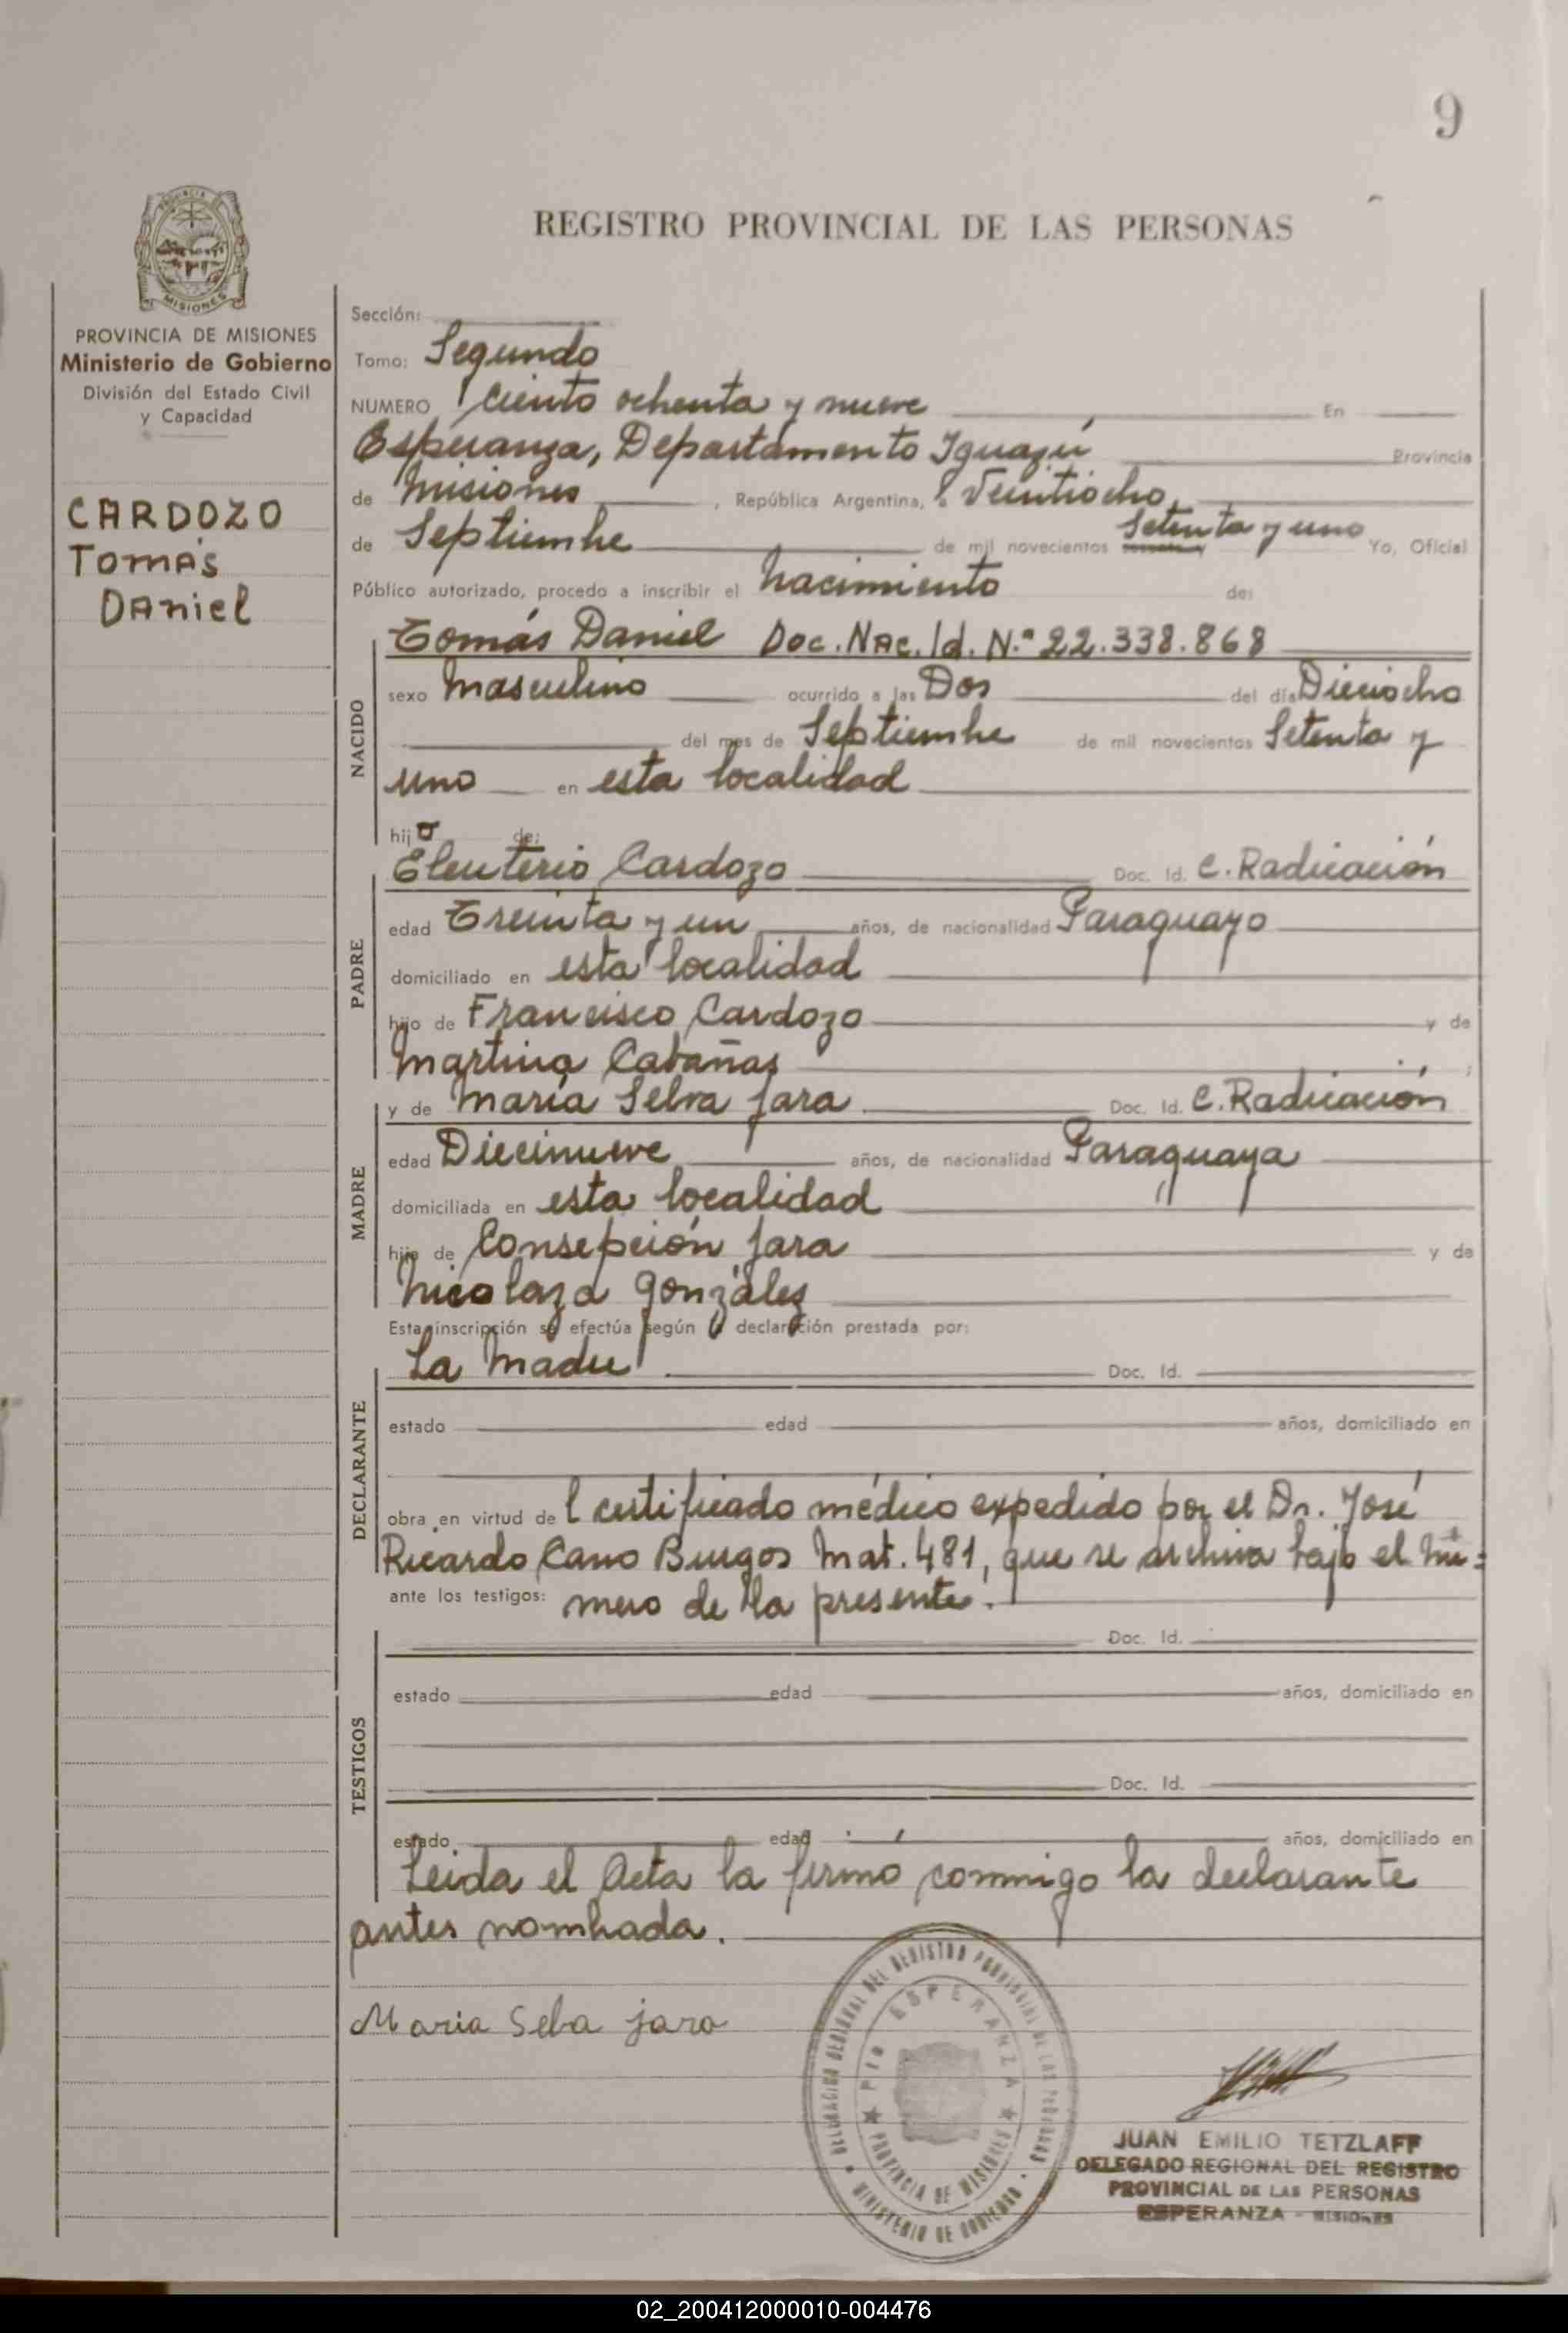 9
PROVINCIA
MISIONES
REGISTRO PROVINCIAL DE LAS PERSONAS
PROVINCIA DE MISIONES
Ministerio de Gobierno
División del Estado Civil
y Capacidad
CARDOZO
Tomás
Daniel
Sección:
Tomo: Segundo
NUMERO Ciento ochenta y nueve En
Esperanza, Departamento Iguazú Provincia
de Misiones, República Argentina, a Veintiocho
de Septiembre de mil novecientos Setenta y uno Yo, Oficial
Público autorizado, procedo a inscribir el nacimiento de:
NACIDO
Tomás Daniel Doc. Nac. Id. N.º 22.338.868
sexo Masculino ocurrido a las Dos del día Dieciocho
del mes de Septiembre de mil novecientos Setenta y
uno en esta localidad
hijo de:
PADRE
Eleuterio Cardozo Doc. Id. C. Radicación
edad Treinta y un años, de nacionalidad Paraguayo
domiciliado en esta localidad
hijo de Francisco Cardozo y de
Martina Cabañas;
MADRE
y de María Selva Jara Doc. Id. C. Radicación
edad Diecinueve años, de nacionalidad Paraguaya
domiciliada en esta localidad
hija de Consepción Jara y de
Nicolaza González
Esta inscripción se efectúa según la declaración prestada por:
DECLARANTE
La Madre Doc. Id.
estado edad años, domiciliado en
obra en virtud del certificado médico expedido por el Dr. José
Ricardo Cano Burgos Mat. 481, que se archiva bajo el nú=
ante los testigos: mero de la presente.
TESTIGOS
Doc. Id.
estado edad años, domiciliado en
Doc. Id.
estado edad años, domiciliado en
Leida el Acta la firmó conmigo la declarante
antes nombrada.
Maria Selba jara
DELEGACION REGIONAL DEL REGISTRO PROVINCIAL DE LAS PERSONAS
Pto ESPERANZA
PROVINCIA DE MISIONES
MINISTERIO DE GOBIERNO
JUAN EMILIO TETZLAFF
DELEGADO REGIONAL DEL REGISTRO
PROVINCIAL DE LAS PERSONAS
ESPERANZA - MISIONES
02_200412000010-004476